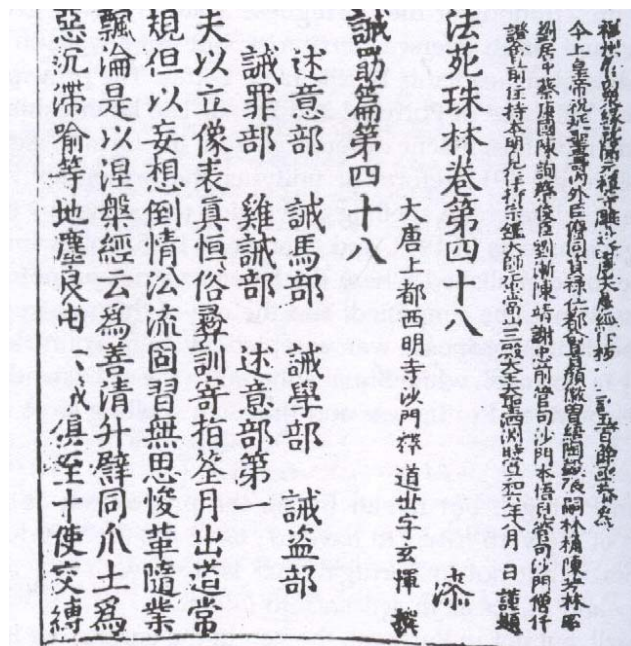 今上皇帝祝延聖壽內外臣僚同資祿位都會首顏徽曾諶圖張嗣林楠陳芳林昭
劉居中蔡康國陳詢蔡俊臣劉漸陳靖謝忠前管句沙門本悟見管句沙門僧仟
證會前住持本明見住持宗鑑大師元忠當山三殿大王大聖泗洲時宣和六年八月 日謹題
法苑珠林卷第四十八 漆
大唐上都西明寺沙門釋 道世字玄惲 撰
誡勖篇第四十八
述意部 誡馬部 誡學部 誡盜部
誡罪部 雜誡部 述意部第一
夫以立像表真恒俗彝訓寄指筌月出道常
規但以妄想倒情沿流固習無思悛革隨業
飄淪是以涅槃經云為善清升譬同爪土為
惡沉滯喻等地塵良由一戒俱至十使交縛